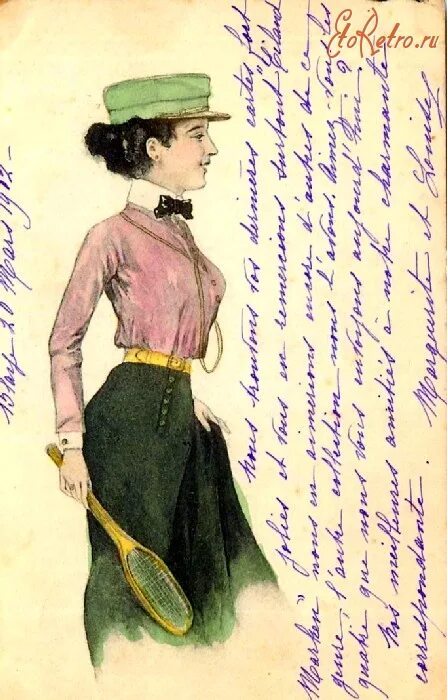 EtoRetro.ru
20 Mars 1912.
Nous trouvons vos dernières cartes fort
jolies et vous en remercions surtout "Eiland
Marken" nous en aimerions encore d'autres de ce
genre, l'autre collection nous l'avons. Aimez-vous les
quatre que nous vous envoyons aujourd'hui?
Nos meilleures amitiés à notre charmante
correspondante.
Marguerit et Louise